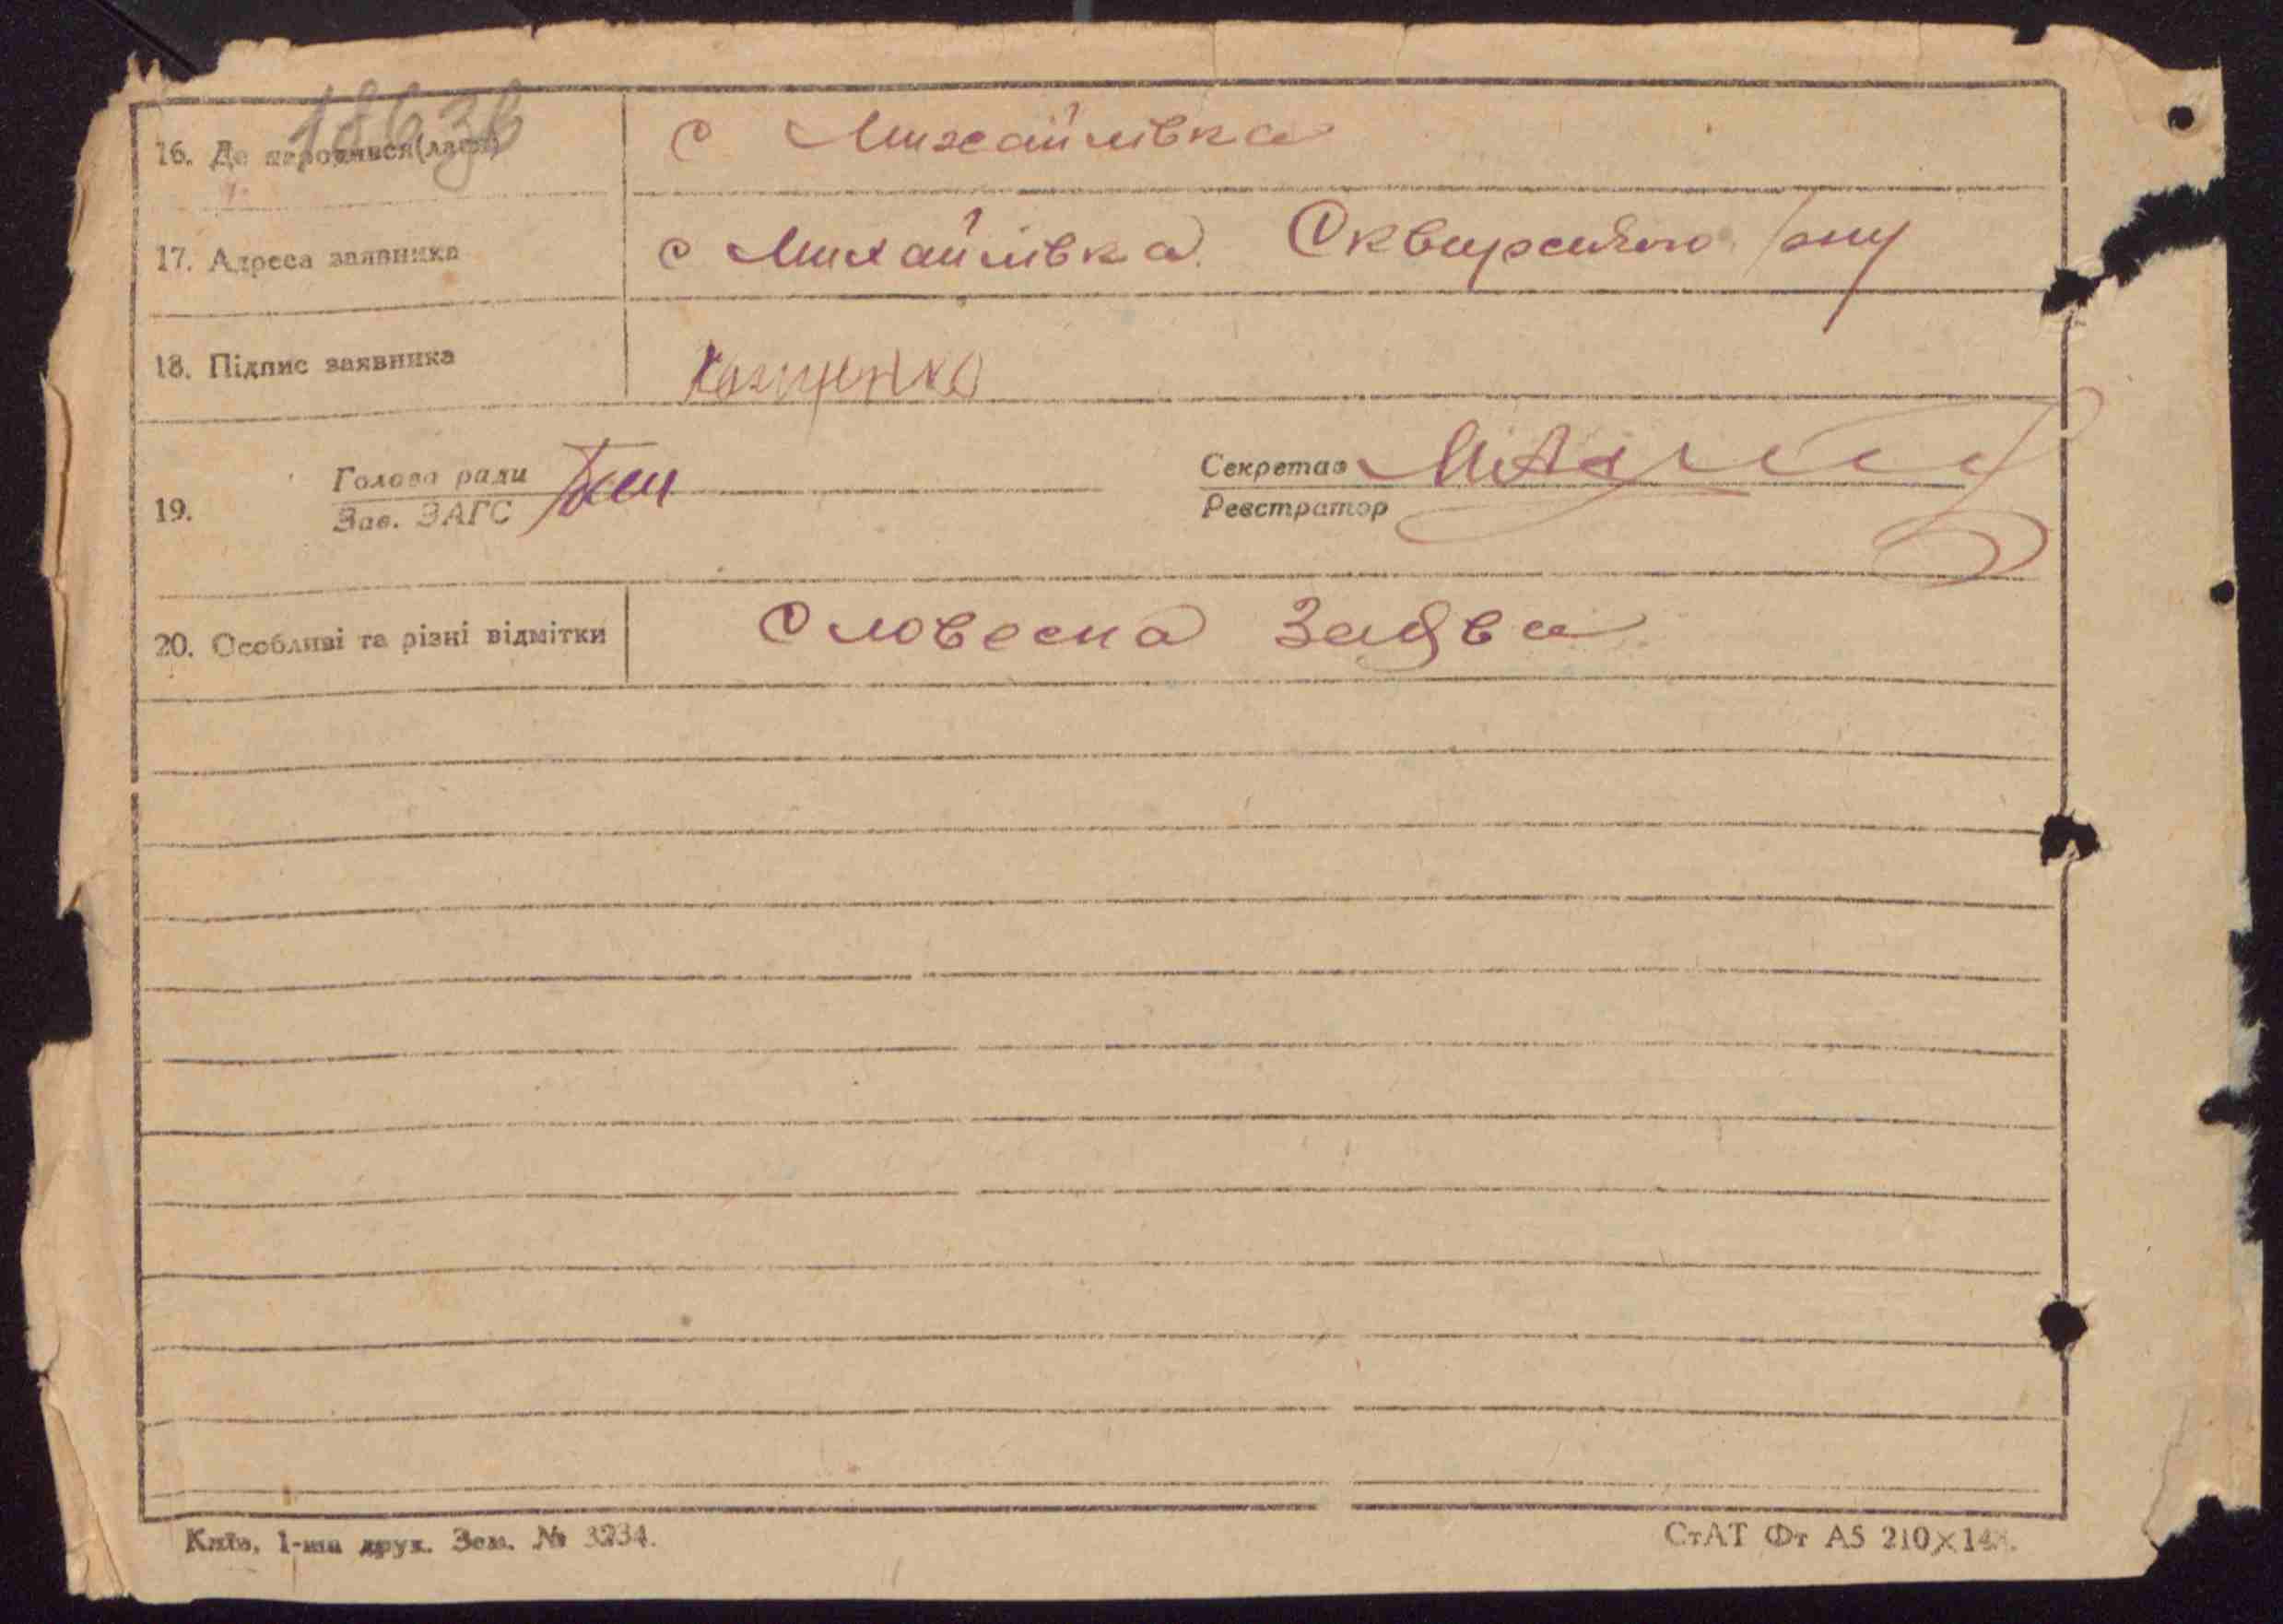 16. Де народився(лася) с Михайлівка
17. Адреса заявника с Михайлівка Сквирського р/ну
18. Підпис заявника
Голова ради Секретар
19.
Зав. ЗАГС Реєстратор
20. Особливі та різні відмітки Словесна Заява
Київ, 1-ша друк. Зам. № 3234. СтАТ Фт А5 210×148.